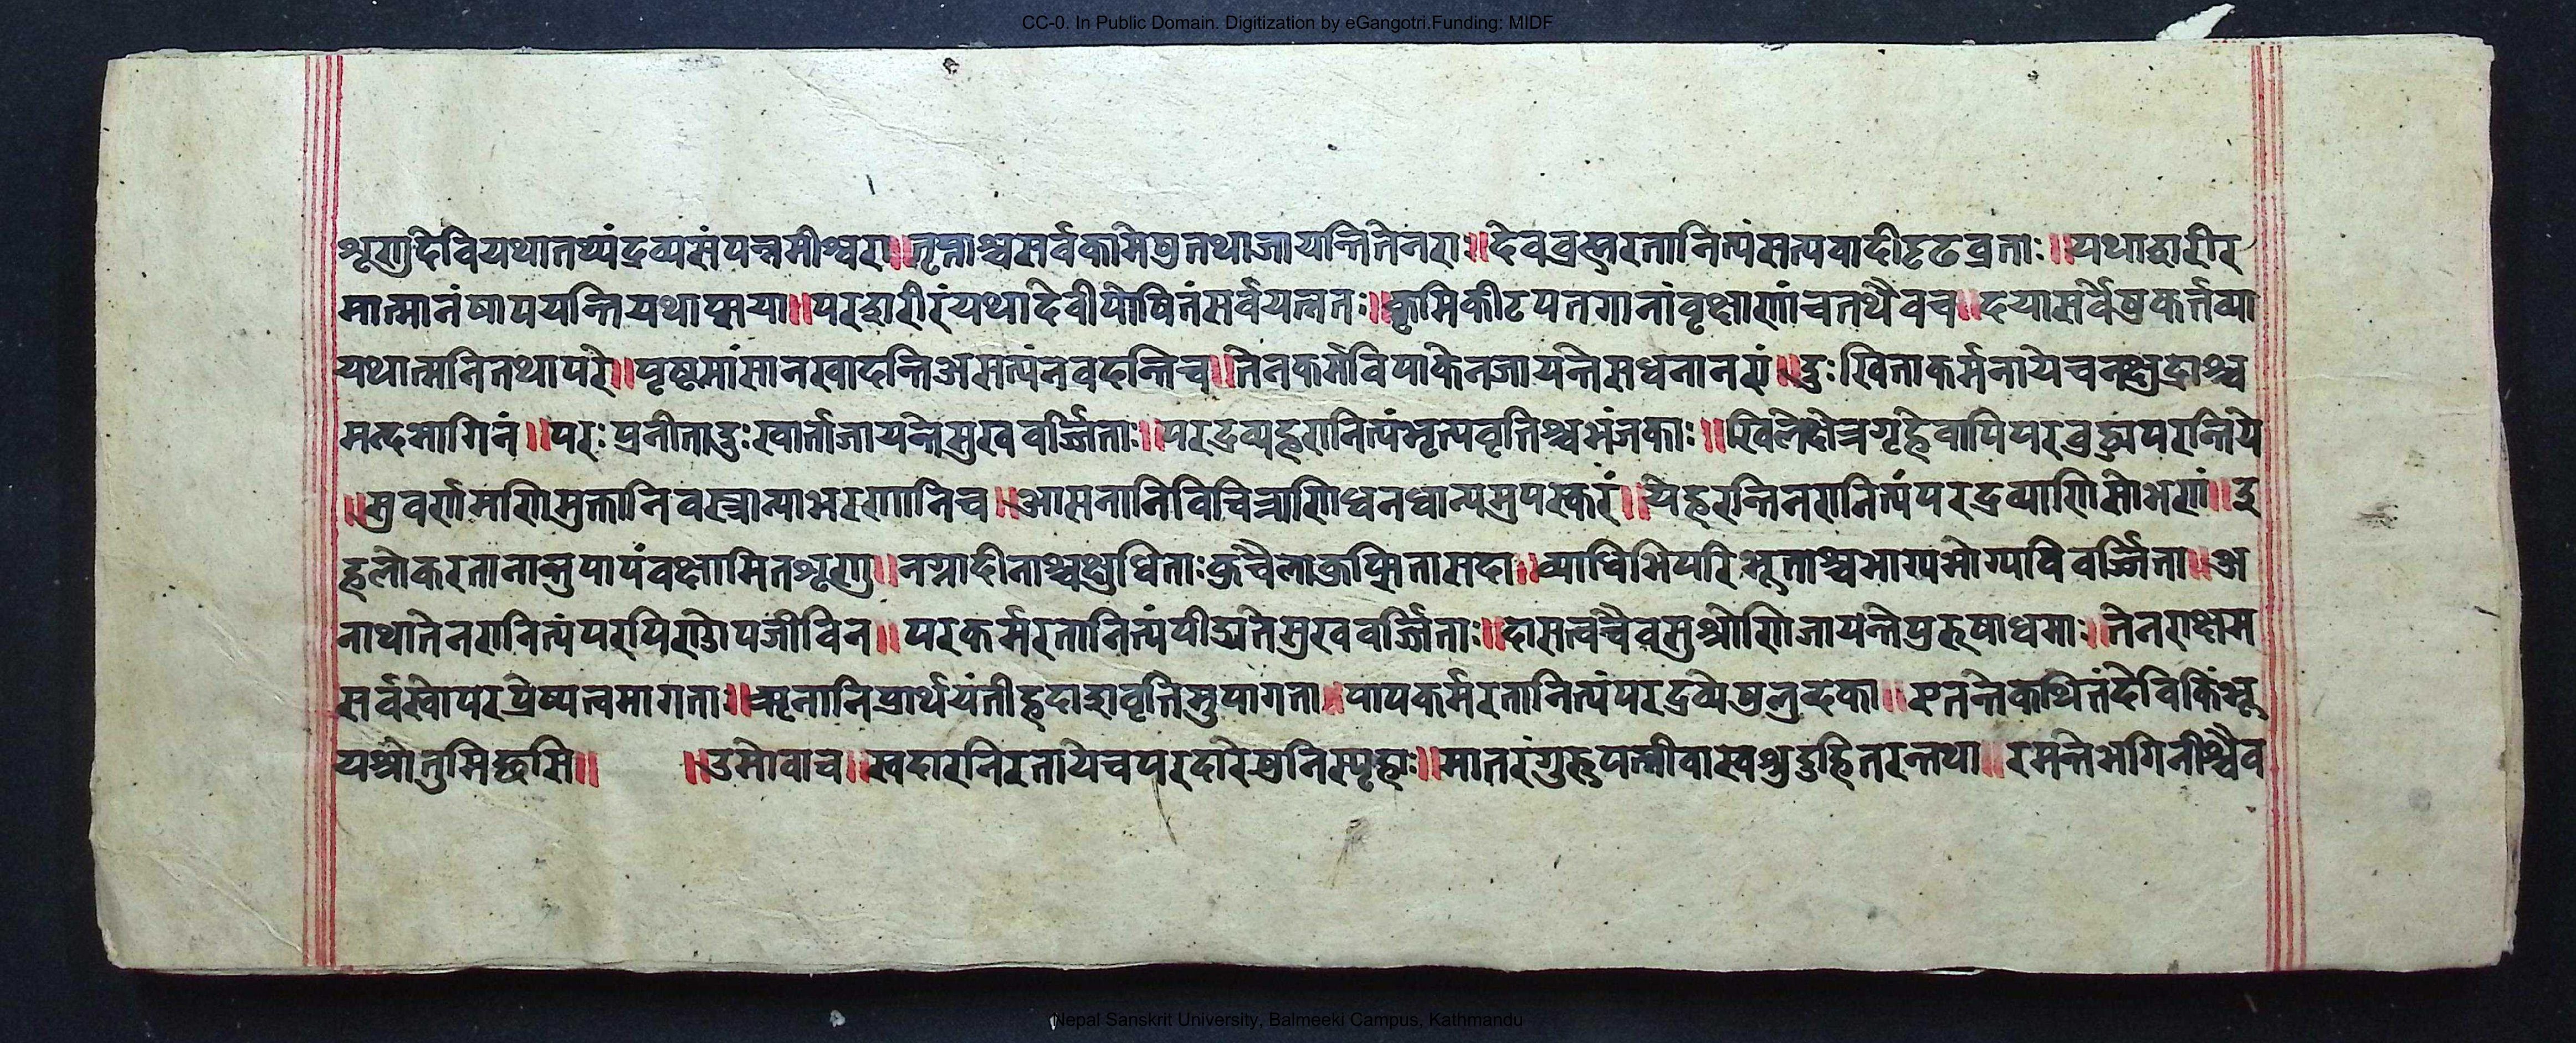 CC-0. In Public Domain. Digitization by eGangotri.Funding: MIDF
शृणुदेवियथातथ्यंद्रव्यसंपन्नमीश्वरा॥तृप्ताश्चसर्वकामेषुतथाजायन्तितेनराः॥देवब्रह्मरतानित्यंसत्यवादीदृढव्रताः॥यथाद्वारीर
मात्मानंषापयन्तियथाप्सया॥परद्वारीरंयथादेवीपोषितंसर्वयत्नतः॥कृमिकीटपतगानांवृक्षाणांचतथैवच॥दयासर्वेषुकर्त्तव्या
यथात्मनितथापरे॥पृष्ठमांसानखादन्तिअसत्यंनवदन्तिच॥तेनकर्मविपाकेनजायन्तेसधनानरां॥दुःखिताकर्मनायेचनक्षुद्राश्च
मन्दभागिनं॥परःप्रनीतादुःखार्ताजायन्तेसुखवर्ज्जिताः॥परद्रव्यहरानित्यंभृत्यवृत्तिश्चभंजकाः॥खिलेक्षेत्रगृहेवापिपर
॥सुवर्णमणिमुक्तानिवस्त्रान्याभरणानिच॥आसनानिविचित्राणिधनधान्यमुपस्करं॥येहरन्तिनरानित्यंपरद्रव्याणिसोभणां॥इ
हलोकरतानान्तुपापंवक्ष्यामितशृणु॥नग्नादीनाश्चक्षुधिताःकुचैलाकुप्सितासदा॥व्याधिभिपरिभूताश्चभाग्यभोग्यविवर्ज्जिता॥अ
नाथातेनरानित्यंपरपिण्डोपजीविन॥परकर्मरतानित्यंपीड्यतेसुखवर्ज्जिताः॥दासत्वंचैवसुश्रोणिजायन्तेपुरुषाधमाः॥तेनराक्षम
सर्वखोपरप्रेष्यत्वमागता॥ऋनानिप्रार्थयंतीहदाद्रावृत्तिमुपागता॥पापकर्मरतानित्यंपरद्रव्येषुलुब्दका॥एतन्तेकथितंदेविकिंभू
यश्रोतुमिच्छसि॥ ॥उमोवाच॥स्वदारनिरतायेचपरदारेषुनिस्पृहाः॥मातरंगुरुपत्नीवास्वश्रुदुहितरन्तथा॥रमन्तेभगिनीश्चैव
Nepal Sanskrit University, Balmeeki Campus, Kathmandu